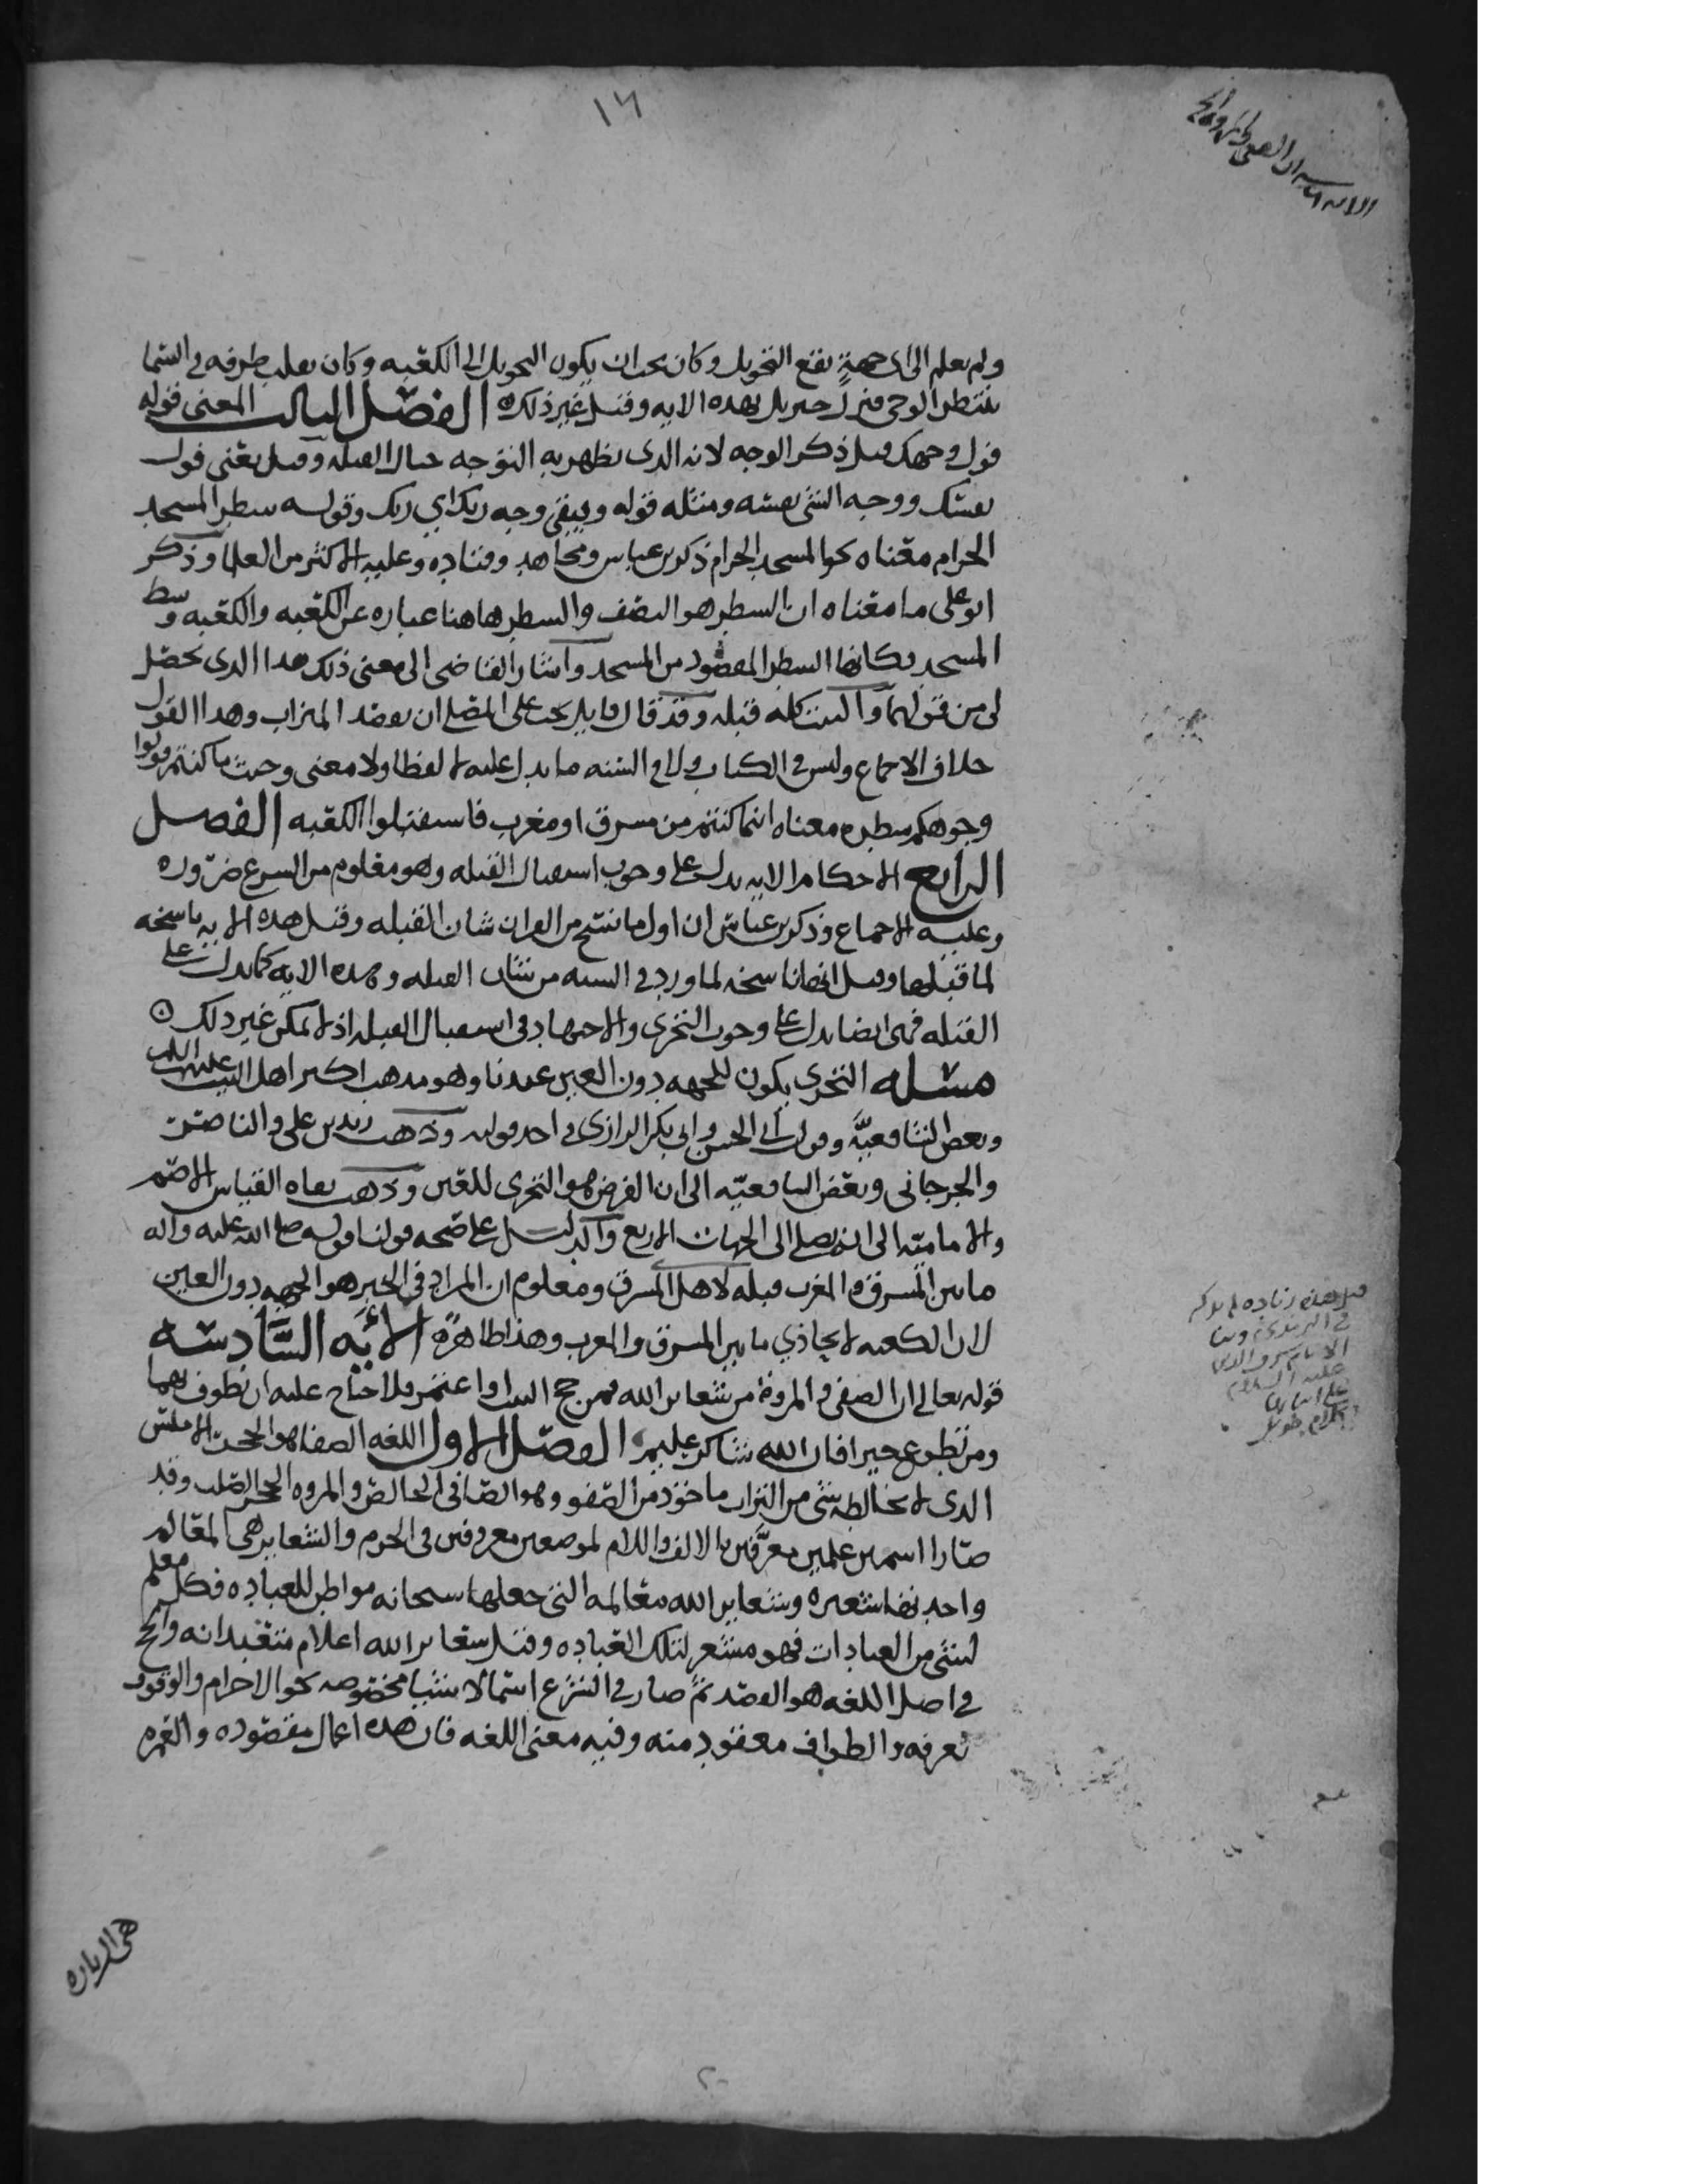 ١٦
ولم يعلم الى اى جهةٍ يقع التحويل وكان يحب ان يكون التحويل الى الكعبه وكان يقلب طرفه في السما
ينتظر الوحى فنزل جبريل بهذه الايه وقيل غير ذلك الفصل الثالث المعنى قوله
فول وجهك قيل ذكر الوجه لانه الذى يظهر به التوجه حيال القبله وقيل يعنى فول
نفسك ووجه الشى نفسه ومثله قوله ويبقى وجه ربك اي ربك وقوله شطر المسجد
الحرام معناه نحو المسجد الحرام ذكره بن عباس ومجاهد وقتاده وعليه الاكثر من العلما وذكر
ابو على ما معناه ان الشطر هو النصف والشطر هاهنا عباره عن الكعبه والكعبه وسط
المسجد فكانها الشطر المقصود من المسجد واشار القاضى الى معنى ذلك هذا الذى تحصل
لى من قولهما والبيت كله قبله وقد قال قايل يجب على المصلى ان يقصد الميزاب وهذا القول
خلاف الاجماع وليس في الكتاب ولا في السنه ما يدل عليه لا لفظا ولا معنى وحيث ما كنتم فولوا
وجوهكم شطره معناه اينما كنتم من مشرق او مغرب فاستقبلوا الكعبه الفصل
الرابع الاحكام الايه يدل على وجوب استقبال القبله وهو معلوم من الشرع ضروره
وعليه الاجماع وذكر بن عباس ان اول ما نسخ من القران شان القبله وقيل هذه الايه ناسخه
لما قبلها وقيل انها ناسخه لما ورد في السنه من شان القبله وهذه الايه كما يدل على
القبله فهى ايضا يدل على وجوب التحرى والاجتهاد في استقبال القبله اذا لم يمكن غير ذلك
مسله التحرى يكون للجهه دون العين عندنا وهو مذهب اكثر اهل البيت عليهم السلم
وبعض الشافعيَّه وقول ابى الحسن وابى بكر الرازى في احد قوليه وذهب زيد بن على والناصر
والجرجانى وبعض الشافعيّه الى ان الفرض هو التحرى للعين وذهب نفاه القياس الاصم
والاماميّه الى انه يصلى الى الجهات الاربع والدليل على صحه قولنا قوله صلى الله عليه واله
ما بين المشرق والمغرب قبله لاهل المشرق ومعلوم ان المراد في الخبر هو الجهه دون العين
لان الكعبه لا يحاذي ما بين المشرق والمغرب وهذا ظاهرٌ الايَه السَّادسه
قوله تعالى ان الصفى والمروه من شعاير الله فمن حج البيت او اعتمر فلا جناح عليه ان يطوف بهما
ومن تطوع خيرا فان الله شاكر عليم الفصل الاول اللغه الصفا هو الحجر الاملس
الذى لا يخالطه شى من التراب ماخوذ من الصفو وهو الصافى الخالص والمروه الحجر الصلب وقد
صارا اسمين علمين معرَّفين بالالف واللام لموضعين معروفين في الحرم والشعاير هى المعالم
واحدتها شعيره وشعاير الله معالمه التى جعلها سبحانه مواطن للعباده فكل معلم
لشى من العبادات فهو مشعر لتلك العباده وقيل شعاير الله اعلام متعبداته والحج
في اصل اللغه هو القصد ثم صار في الشرع اسما لاشيا مخصوصه نحو الاحرام والوقوف
بعرفه والطواف معقود منه وفيه معنى اللغه فان هذه اعمال مقصوده والعمره
هى الزياره
الايه السادسه ان الصفى والمروه
قبل هذه زياده لم يذكر
عليه السلام
كلام طويل